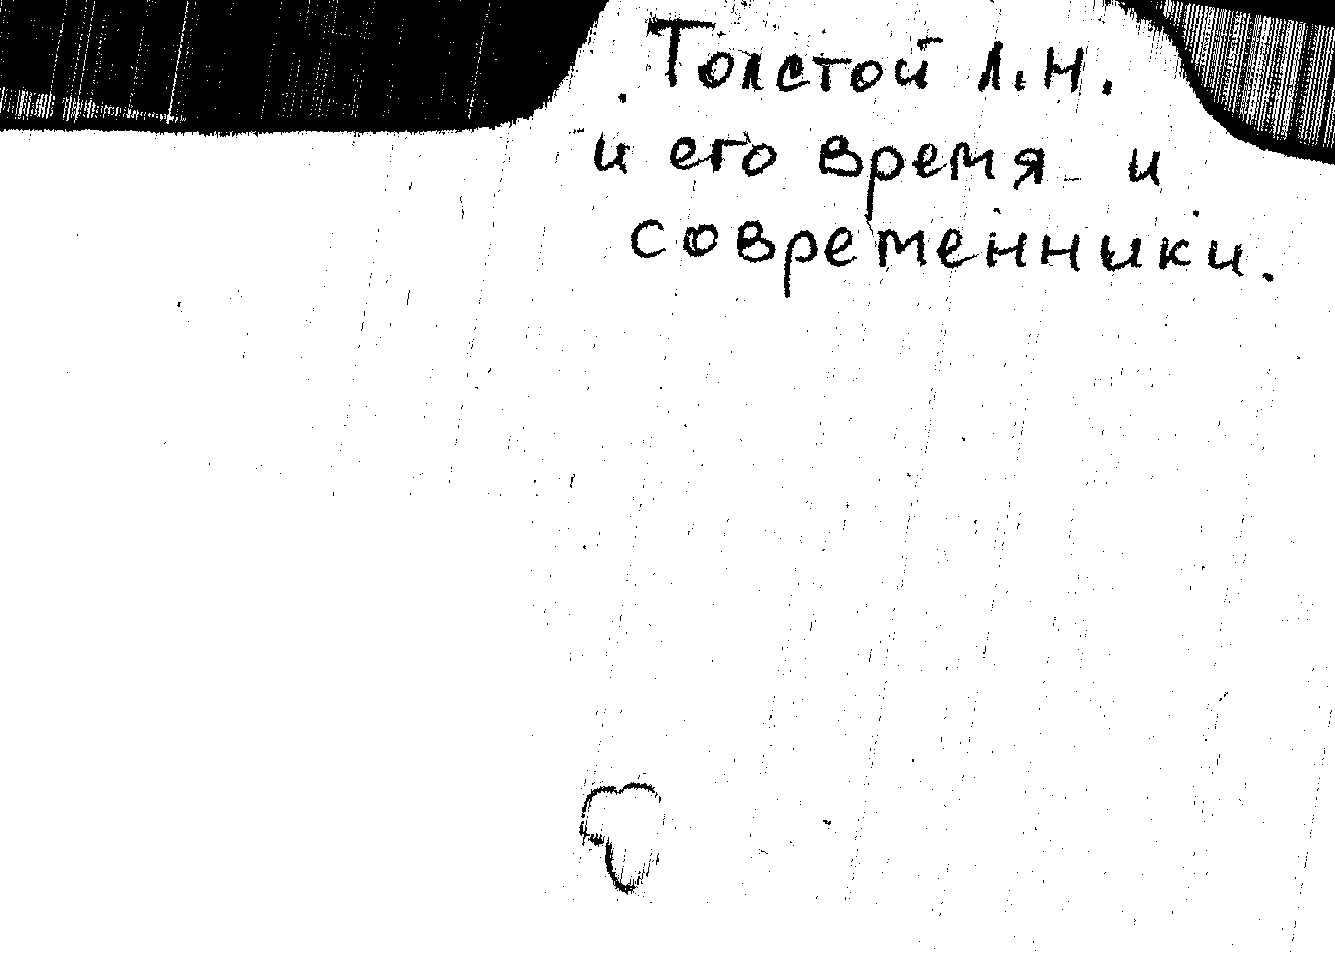 Толстой Л.Н.
и его время и
современники.